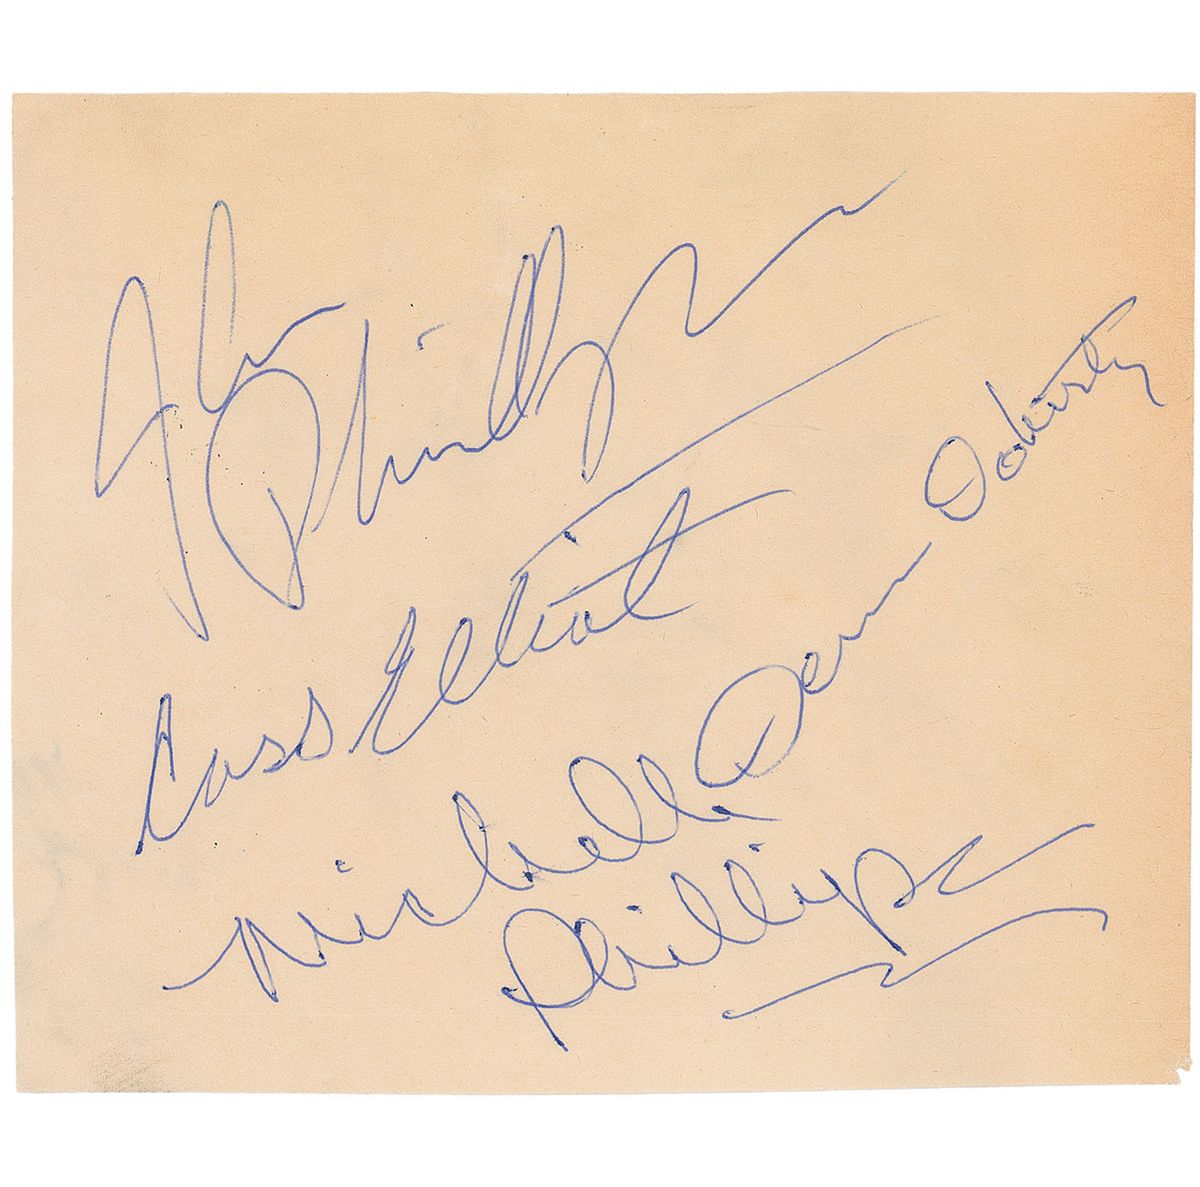 John Phillips
Cass Elliot
Denny Doherty
Michelle
Phillips